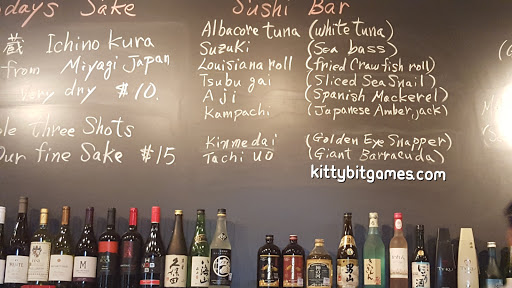 days Sake
蔵 Ichino kura
from Miyagi Japan
Very dry $10.
ple three Shots
Our fine Sake $15
Sushi Bar
Albacore tuna (white tuna)
Suzuki (Sea bass)
Louisiana roll (fried Crawfish roll)
Tsubu gai (Sliced Sea Snail)
Aji (Spanish Mackerel)
Kampachi (Japanese Amber jack)
Kinmedai (Golden Eye Snapper)
Tachi uo (Giant Barracuda)
kittybitgames.com
久保田
男山